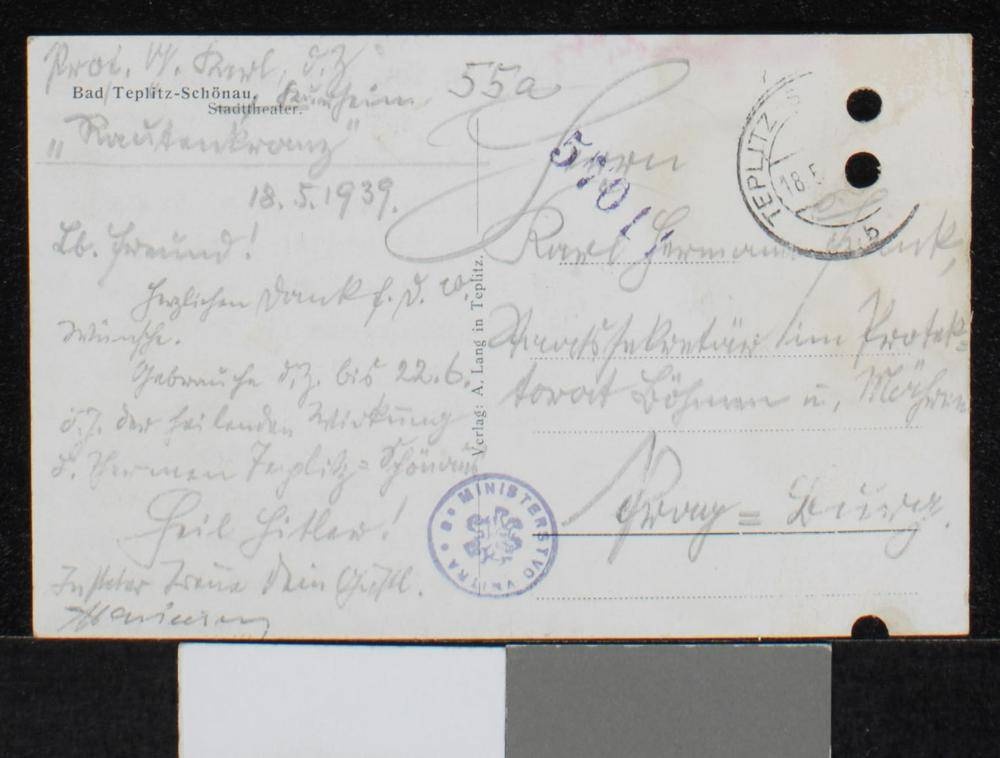 Prof. W. Karl, d. Z.
Bad Teplitz-Schönau.
Stadttheater.
Kurheim
„Rautenkranz"
18.5.1939.
Lb. Freund!
Herzlichen Dank f. D. w.
Wünsche.
Gebrauche d. Z. bis 22.6.
d. J. der heilenden Wirkung
d. Thermen Teplitz=Schönau
Heil Hitler!
In steter Treue Dein
55a
Verlag: A. Lang in Teplitz.
Herrn
Karl Hermann Frank,
Staatssekretär im Protek=
torat Böhmen u. Mähren
Prag = Burg.
TEPLITZ
18.5
MINISTERSTVO VNITRA